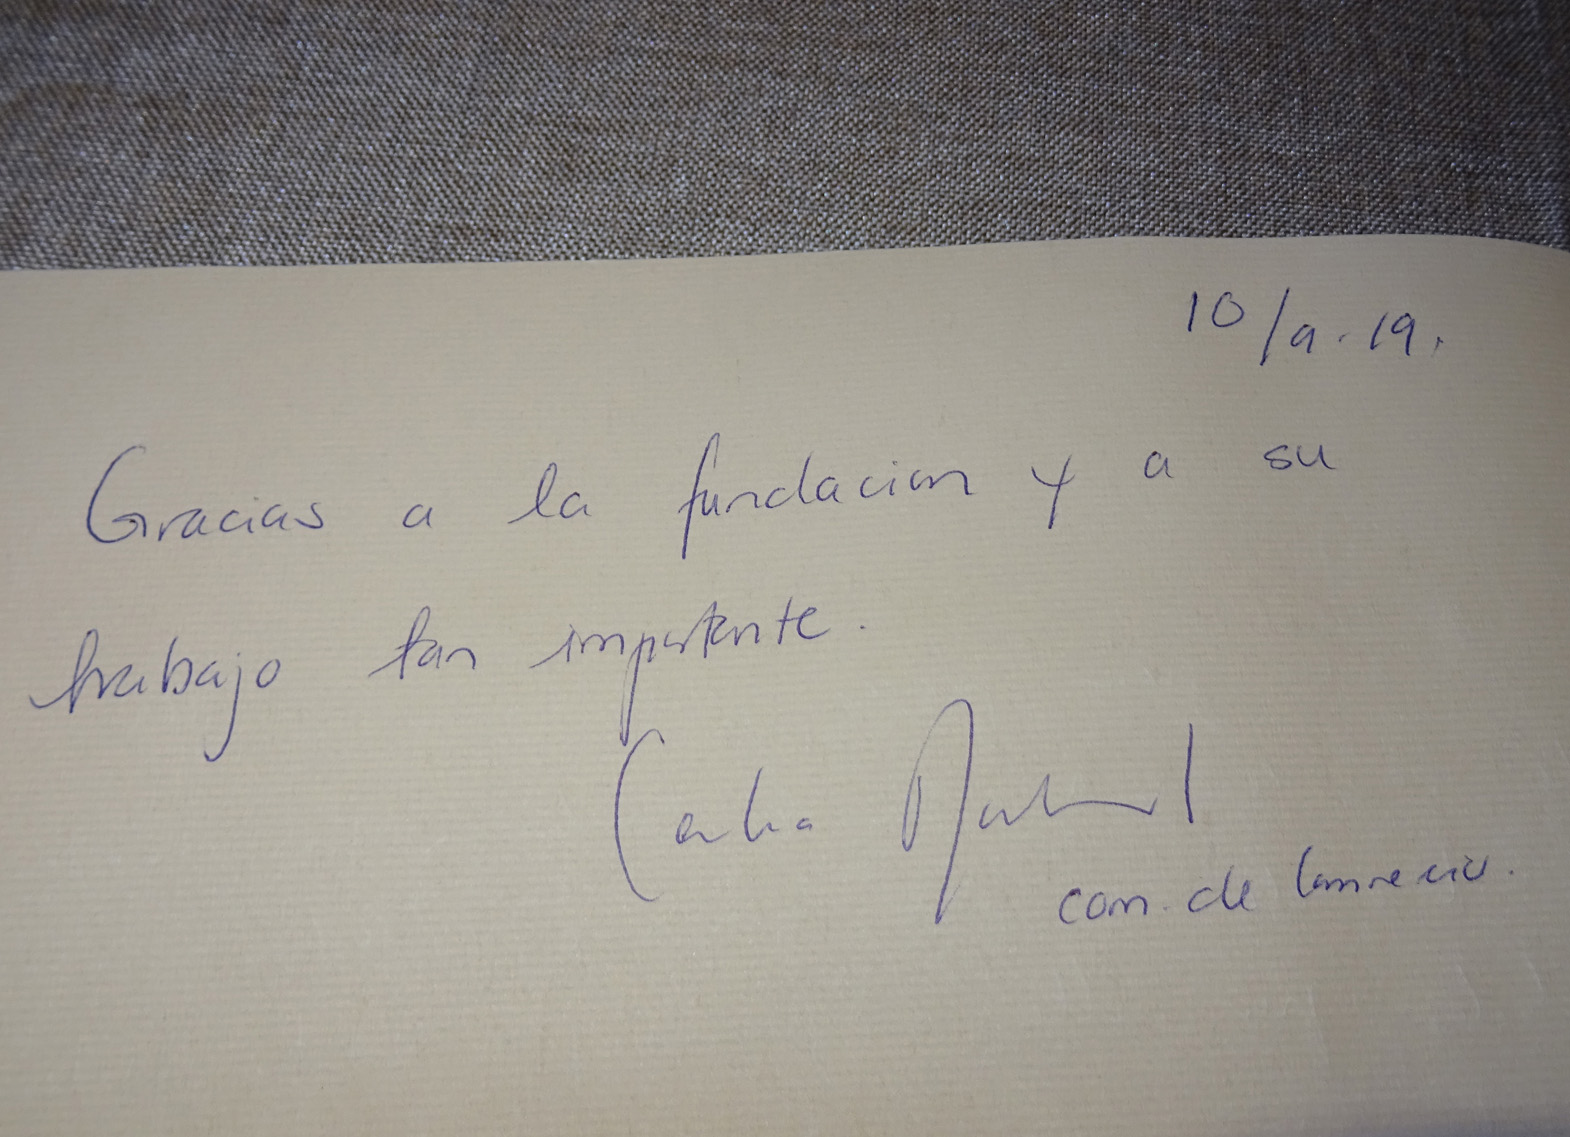 10/9.19.
Gracias a la fundacion y a su
trabajo tan importante.
com. de